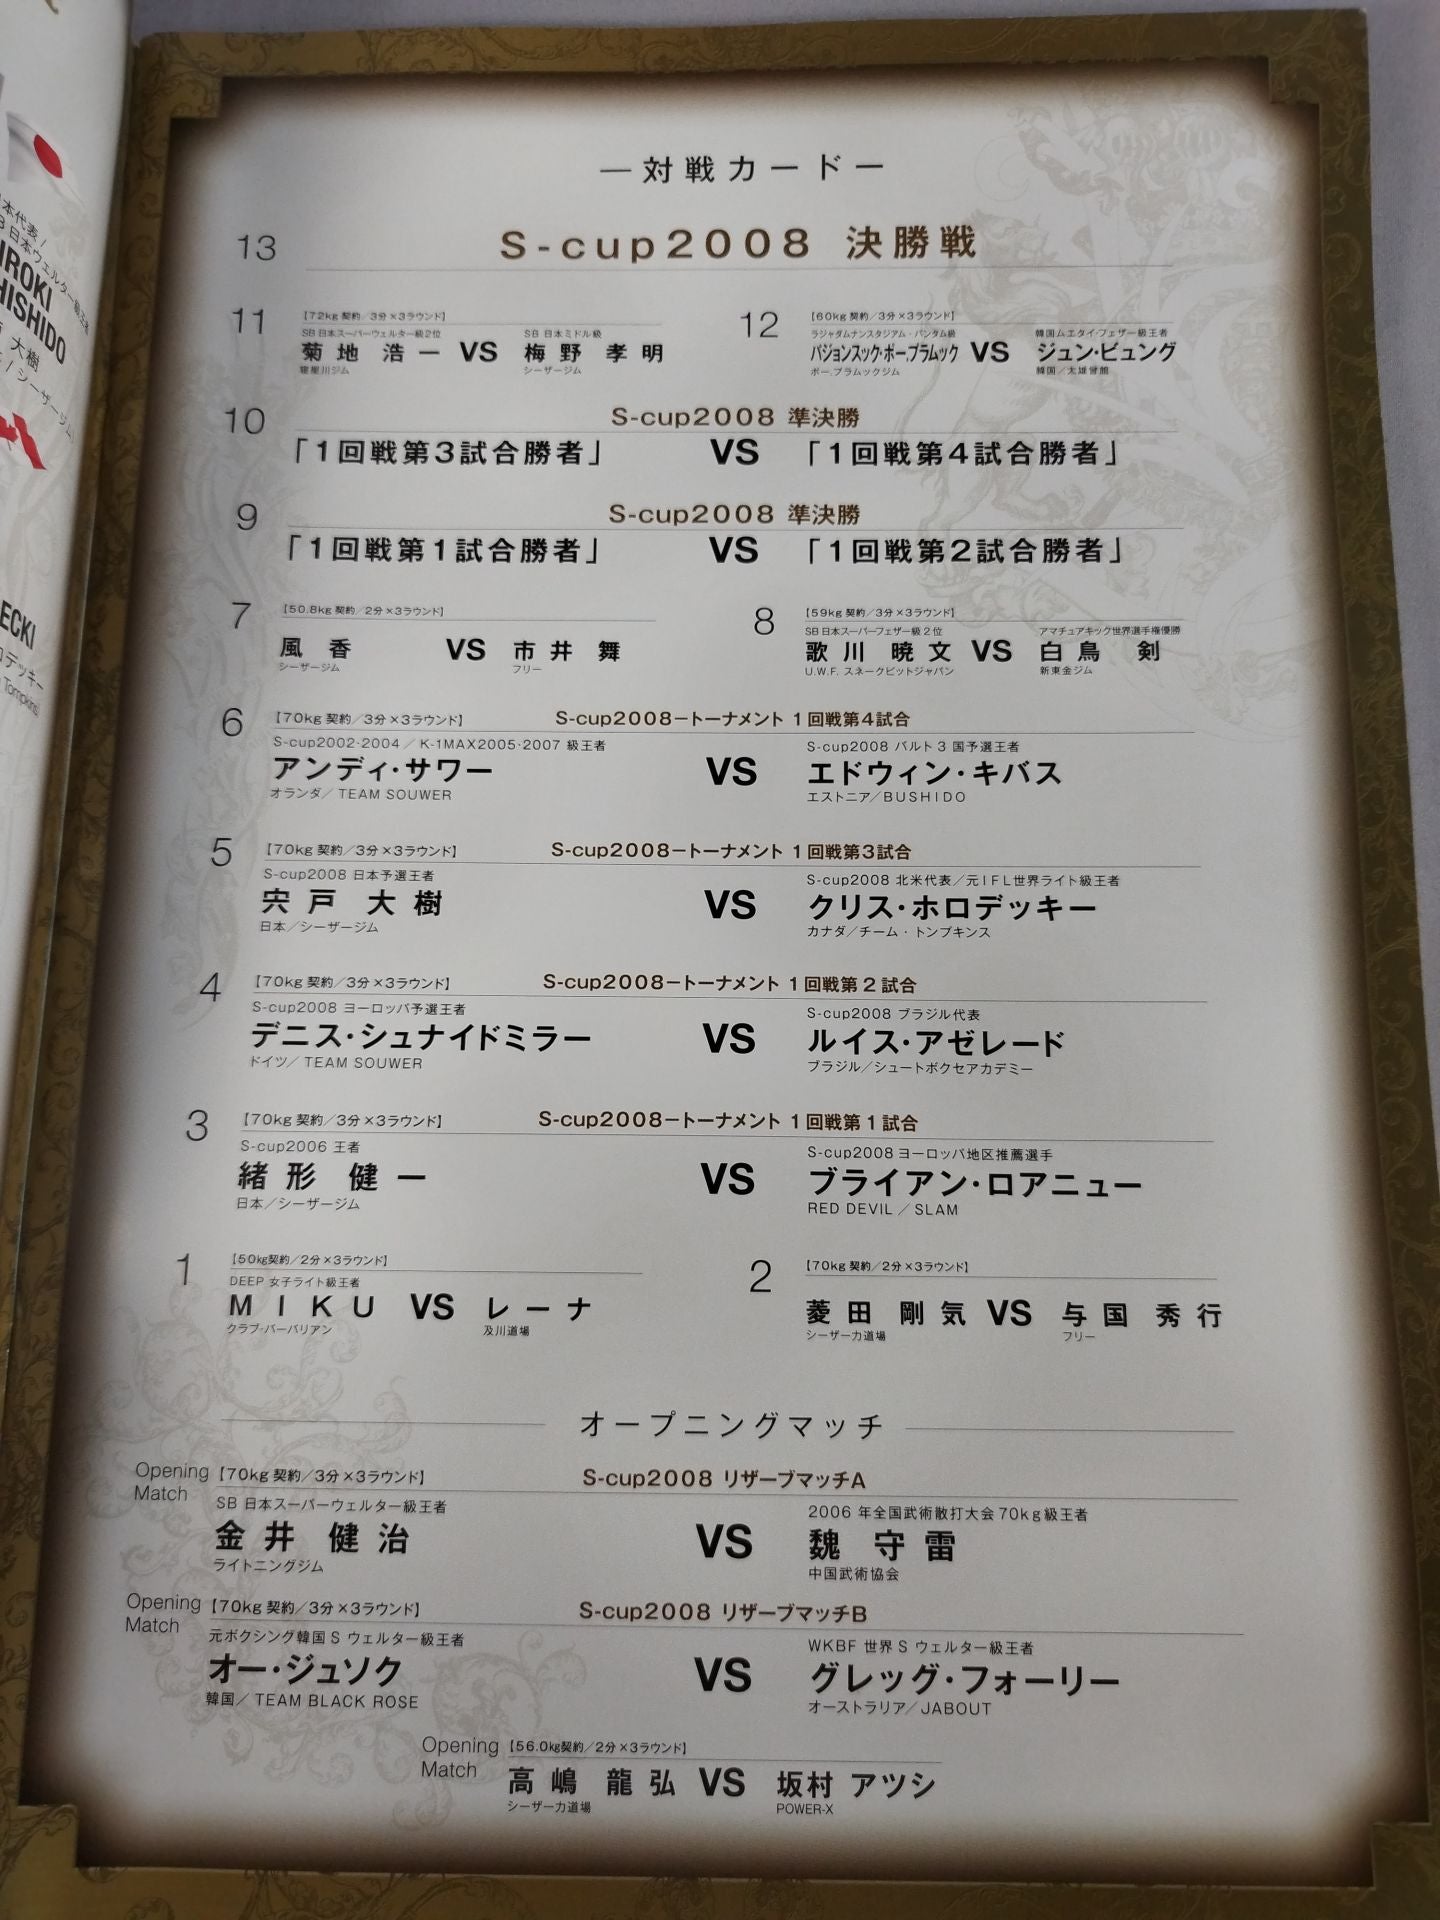 本代表/
SB 日本ウェルター級王者
HIROKI
SHISHIDO
大樹
/シーザージム
ECKI
ロデッキー
Tompkins
―対戦カード―
13 S-cup2008 決勝戦
11 【72kg 契約/3分×3ラウンド】
SB 日本スーパーウェルター級2位 SB 日本ミドル級
菊地 浩一 VS 梅野 孝明
寝屋川ジム シーザージム
12 【60kg 契約/3分×3ラウンド】
ラジャダムナンスタジアム・バンタム級 韓国ムエタイ・フェザー級王者
パジョンスック・ポー.プラムック VS ジュン・ビュング
ポー.プラムックジム 韓国/太雄會館
10 S-cup2008 準決勝
「1回戦第3試合勝者」 VS 「1回戦第4試合勝者」
9 S-cup2008 準決勝
「1回戦第1試合勝者」 VS 「1回戦第2試合勝者」
7 【50.8kg 契約/2分×3ラウンド】
風香 VS 市井 舞
シーザージム フリー
8 【59kg 契約/3分×3ラウンド】
SB 日本スーパーフェザー級2位 アマチュアキック世界選手権優勝
歌川 暁文 VS 白鳥 剣
U.W.F. スネークピットジャパン 新東金ジム
6 【70kg 契約/3分×3ラウンド】 S-cup2008ートーナメント 1回戦第4試合
S-cup2002・2004/K-1MAX2005・2007 級王者 S-cup2008 バルト3国予選王者
アンディ・サワー VS エドウィン・キバス
オランダ/TEAM SOUWER エストニア/BUSHIDO
5 【70kg 契約/3分×3ラウンド】 S-cup2008ートーナメント 1回戦第3試合
S-cup2008 日本予選王者 S-cup2008 北米代表/元IFL世界ライト級王者
宍戸 大樹 VS クリス・ホロデッキー
日本/シーザージム カナダ/チーム・トンプキンス
4 【70kg 契約/3分×3ラウンド】 S-cup2008ートーナメント 1回戦第2試合
S-cup2008 ヨーロッパ予選王者 S-cup2008 ブラジル代表
デニス・シュナイドミラー VS ルイス・アゼレード
ドイツ/TEAM SOUWER ブラジル/シュートボクセアカデミー
3 【70kg 契約/3分×3ラウンド】 S-cup2008ートーナメント 1回戦第1試合
S-cup2006 王者 S-cup2008 ヨーロッパ地区推薦選手
緒形 健一 VS ブライアン・ロアニュー
日本/シーザージム RED DEVIL/SLAM
1 【50kg契約/2分×3ラウンド】
DEEP 女子ライト級王者
MIKU VS レーナ
クラブ・バーバリアン 及川道場
2 【70kg 契約/2分×3ラウンド】
菱田 剛気 VS 与国 秀行
シーザー力道場 フリー
オープニングマッチ
Opening Match 【70kg 契約/3分×3ラウンド】 S-cup2008 リザーブマッチA
SB 日本スーパーウェルター級王者 2006 年全国武術散打大会70kg級王者
金井 健治 VS 魏 守雷
ライトニングジム 中国武術協会
Opening Match 【70kg 契約/3分×3ラウンド】 S-cup2008 リザーブマッチB
元ボクシング韓国 S ウェルター級王者 WKBF 世界 S ウェルター級王者
オー・ジュソク VS グレッグ・フォーリー
韓国/TEAM BLACK ROSE オーストラリア/JABOUT
Opening Match 【56.0kg契約/2分×3ラウンド】
高嶋 龍弘 VS 坂村 アツシ
シーザー力道場 POWER-X